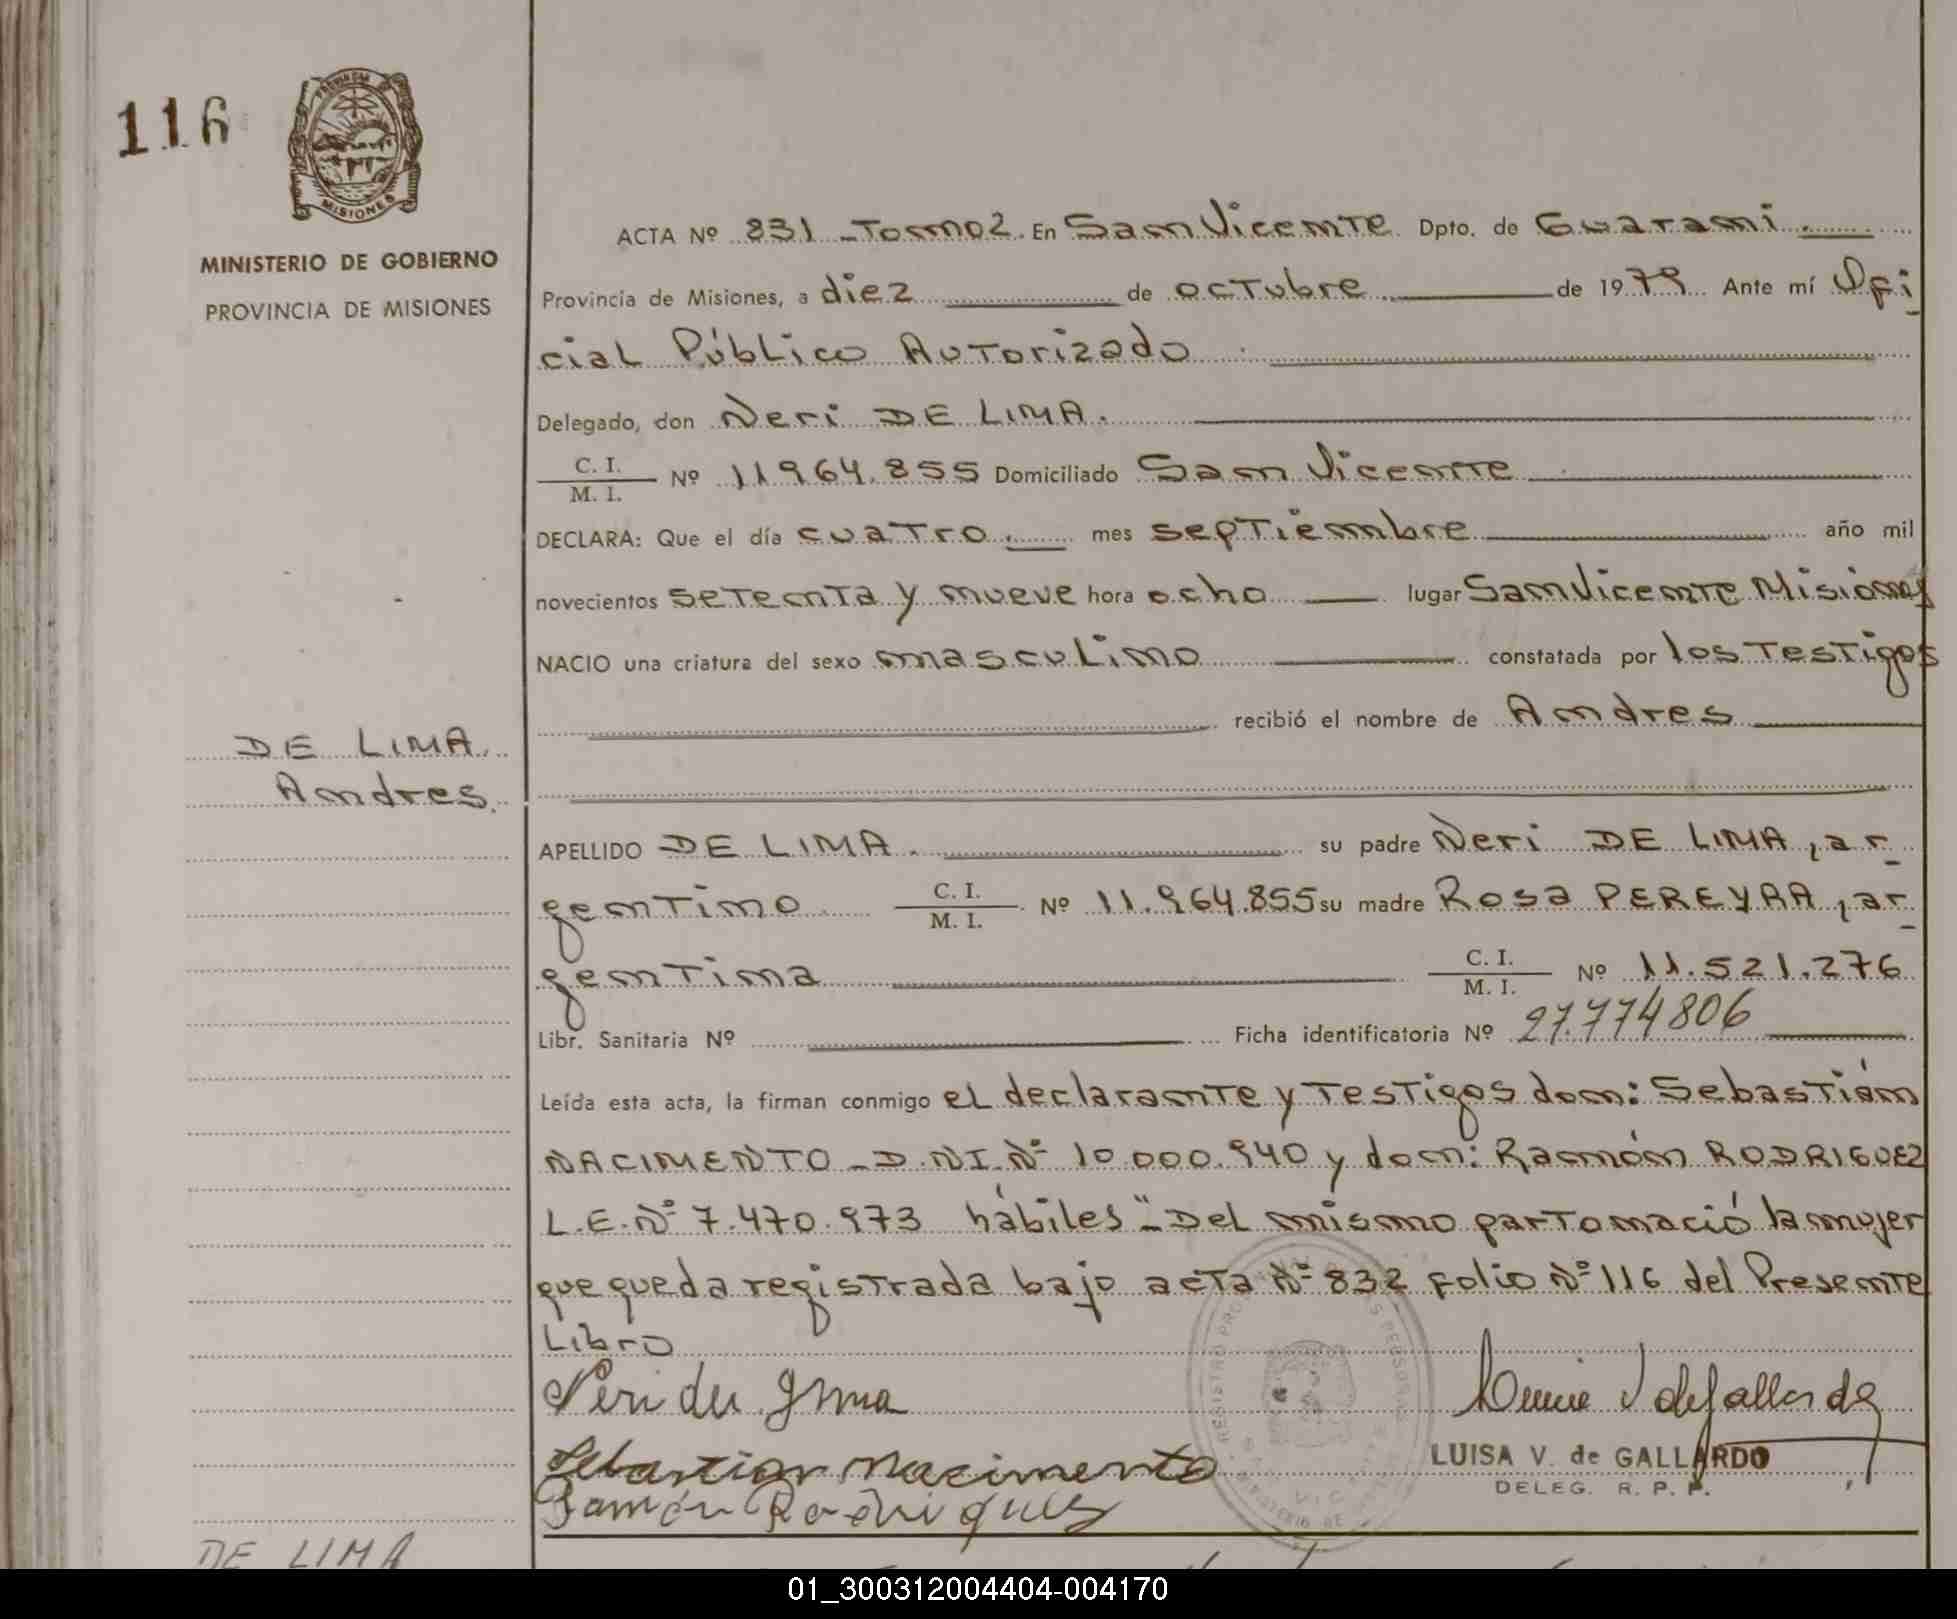 116
PROVINCIA
MISIONES
MINISTERIO DE GOBIERNO
PROVINCIA DE MISIONES
ACTA Nº 831 - Tomo 2 En San Vicente Dpto. de Guarani
Provincia de Misiones, a diez de octubre de 1979 Ante mí Ofi
cial Público Autorizado
Delegado, don Neri DE LIMA.
C. I.
M. I. Nº 11964.855 Domiciliado San Vicente
DECLARA: Que el día cuatro mes septiembre año mil
novecientos setenta y nueve hora ocho lugar San Vicente Misiones
NACIO una criatura del sexo masculino constatada por los testigos
recibió el nombre de Andres
DE LIMA
Andres
APELLIDO DE LIMA. su padre Neri DE LIMA, ar
gentino C. I. M. I. Nº 11.964.855 su madre Rosa PEREYRA, ar
gentina C. I. M. I. Nº 11.521.276
Libr. Sanitaria Nº Ficha identificatoria Nº 27.774806
Leída esta acta, la firman conmigo el declarante y testigos don: Sebastián
NACIMENTO - D.NI.Nº 10.000.940 y don: Ramón RODRIGUEZ
L.E.Nº 7.470.973 hábiles "- Del mismo parto nació la mujer
que queda registrada bajo acta Nº 832 folio Nº 116 del Presente
Libro
Neri de Lima
Sebastian Nacimento
Ramón Rodrigues
LUISA V. de GALLARDO
DELEG. R. P. P.
DE LIMA
01_300312004404-004170